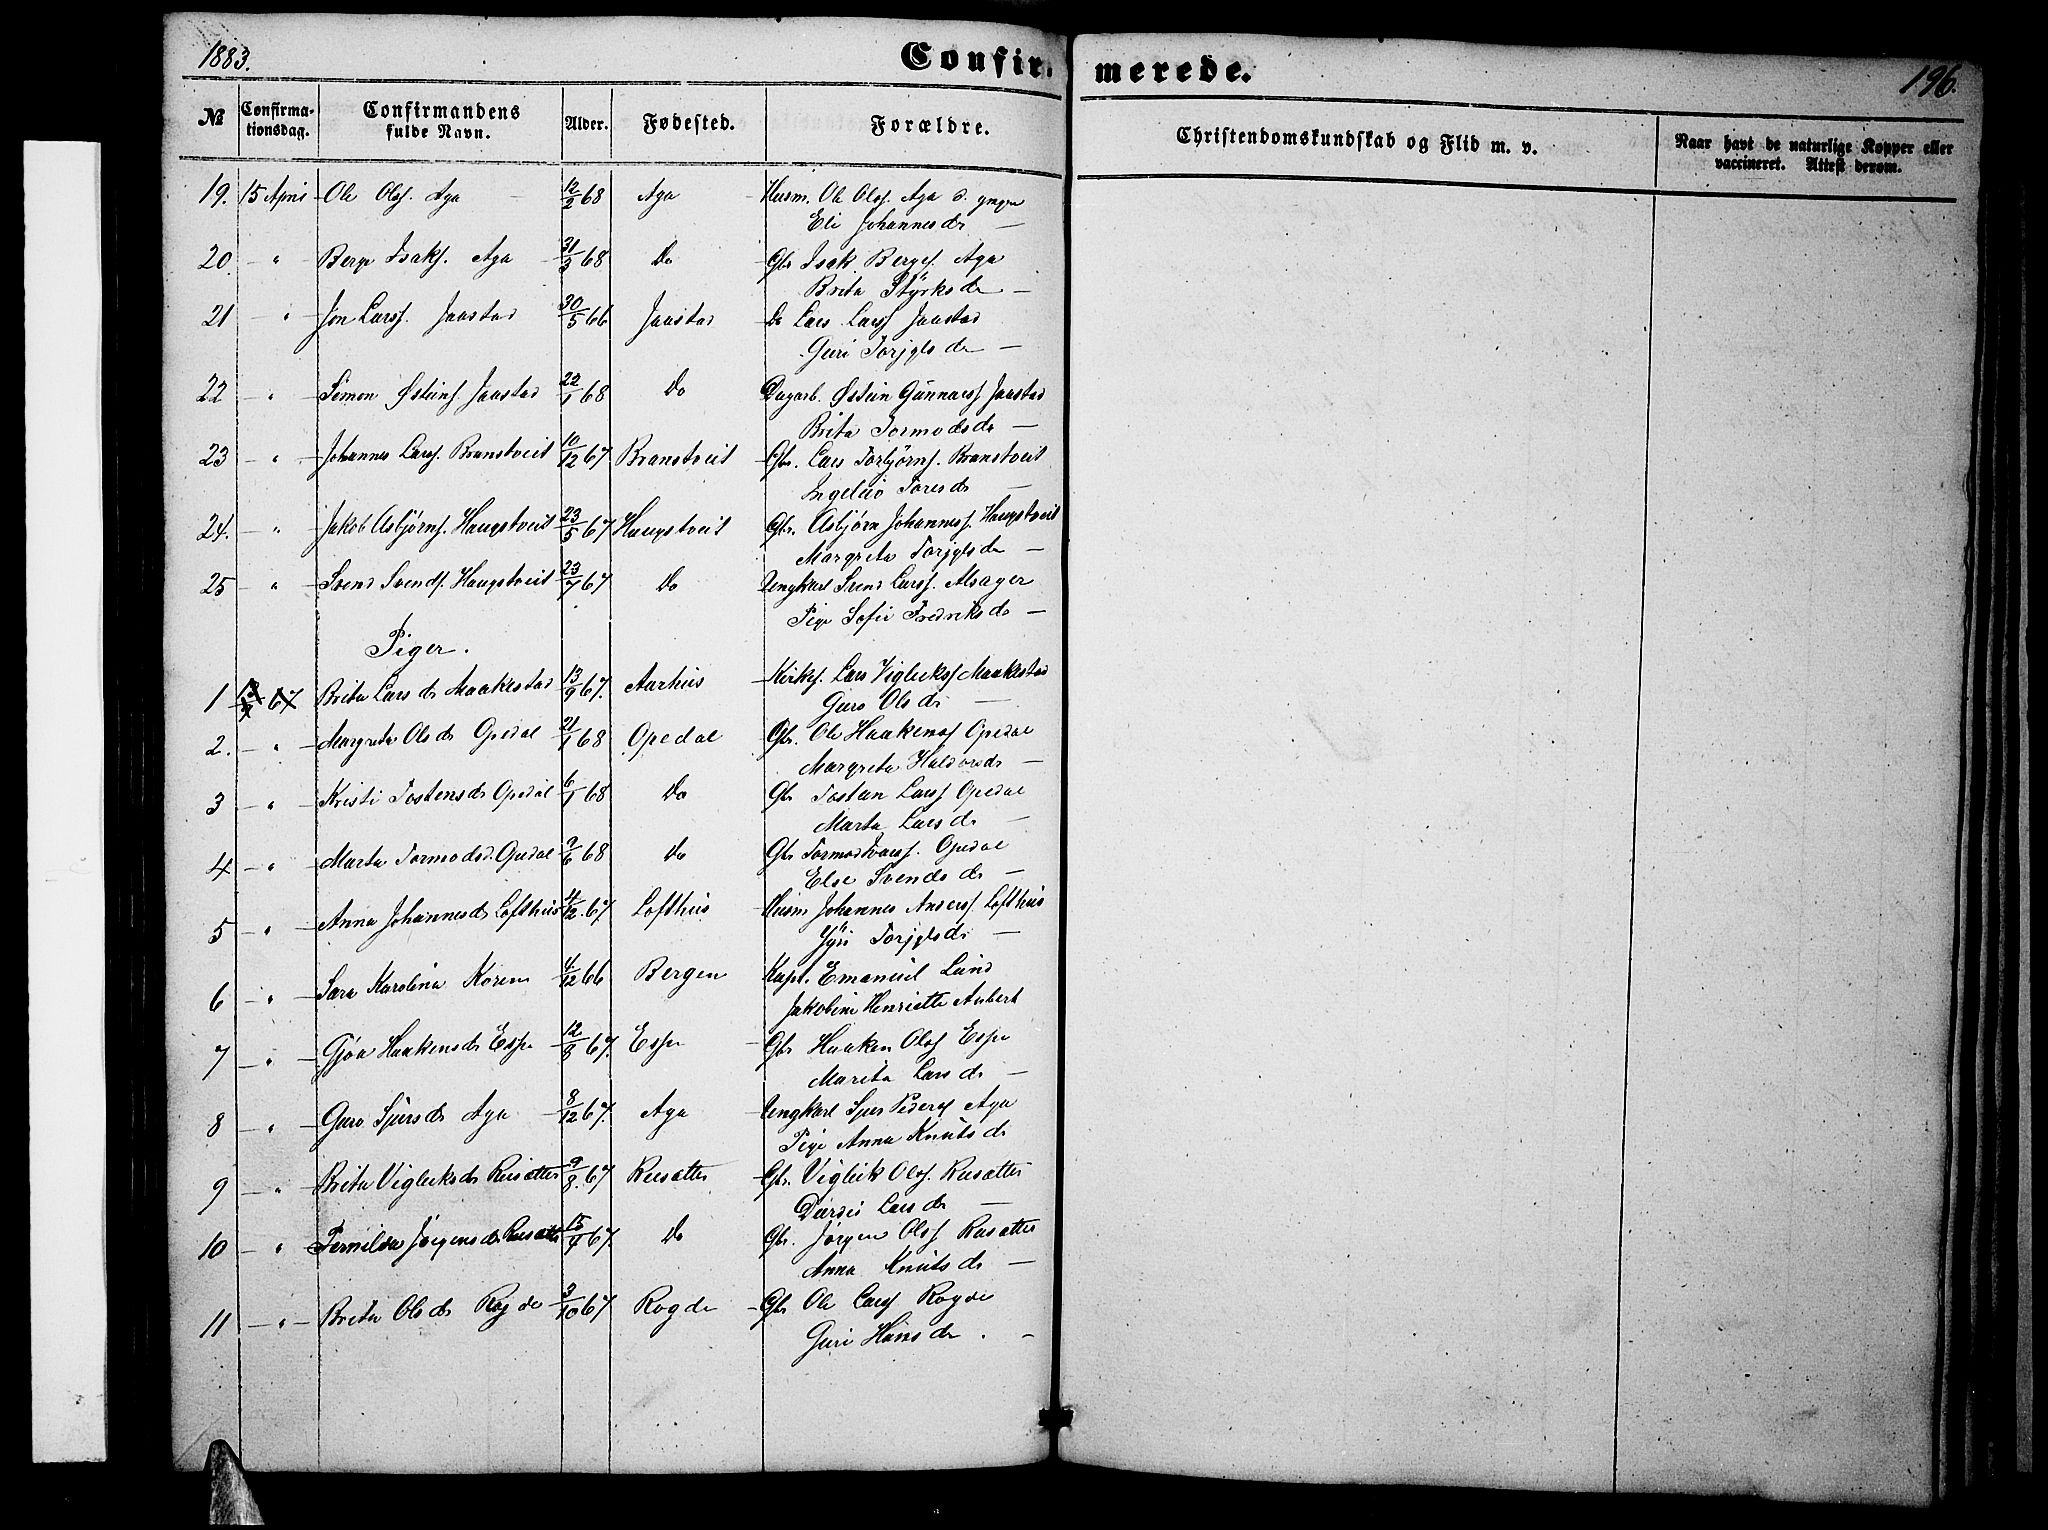 1883.
Confirmerede.
196.
№ Confirmationsdag. Confirmandens fulde Navn. Alder. Fødested. Forældre. Christendomskundskab og Flid m. v. Naar havt de naturlige Kopper eller vaccineret. Attest derom.
19. 15 April Ole Olss. Aga 12/2 68 Aga Husm. Ole Olss. Aga d. yngre
Eli Johannesdr —
20. " Berge Isaks. Aga 31/3 68 Do Gbr Isak Bergess. Aga
Brita Styrksdr —
21 " Jon Larss. Jaastad 30/5 66 Jaastad Do Lars Larss Jaastad
Guri Torjylsdr —
22 " Simon Østeins. Jaastad 22/1 68 Do Dagarb. Østein Gunnarss Jaastad
Brita Tormodsdr —
23 " Johannes Larss. Branstveit 10/12 67 Branstveit Gbr. Lars Torbjørns. Branstveit
Ingeleiv Toresdr —
24. " Jakob Asbjørns. Haugstveit 23/5 67 Haugstveit Gbr. Asbjørn Johanness. Haugstveit
Margreta Torjylsdr —
25 " Svend Svends. Haugstveit 23/7 67 Do Ungkarl Svend Larss. Alsager
Pige Sofie Fredriksdr —
Piger.
1 67 Brita Larsdr Maakestad 13/9 67. Aarhus Kirkes. Lars Vigleikss Maakestad
Guro Olsdr —
2. " Margreta Olsdr Opedal 21/1 68 Opedal Gbr. Ole Haakenss Opedal
Margreta Haldorsdr —
3 " Kristi Tostensdr Opedal 6/1 68 Do Gbr Tostein Larss Opedal
Marta Larsdr —
4 " Marta Tormodsd. Opedal 9/6 68 Do Gbr Tormod Ivarss. Opedal
Else Svendsdr —
5 " Anna Johannesdr Lofthus 4/12 67. Lofthus Husm Johannes Anderss. Lofthus
Torjylsdr —
6 " Sara Karolina Koren 4/12 66 Bergen Kapt. Emanuel Lund
Jakobine Henriette Aubert
7 " Gjøa Haakensdr Espe 12/8 67. Espe Gbr Haaken Olss Espe
Marita Larsdr —
8 " Guro Sjursdr Aga 8/12 67. Aga Ungkarl Sjur Pederss Aga
Pige Anna Knutsdr
9 " Brita Vigleiksdr Reisæter 9/8. 67 Reisæter Gbr. Vigleik Olss. Reisæter
Durdei Larsdr —
10 " Pernilla Jørgensdr Reisæter 15/9 67. Do Gbr. Jørgen Olss Reisæter
Anna Knutsdr —
11 " Brita Olsdr Rogde 3/10 67 Rogde Gbr Ole Larss Rogde
Guri Hansdr. —